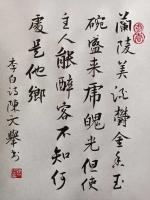 蘭陵美酒鬱金香玉
碗盛来琥珀光但使
主人能醉客不知何
處是他鄉
李白诗陳文舉书